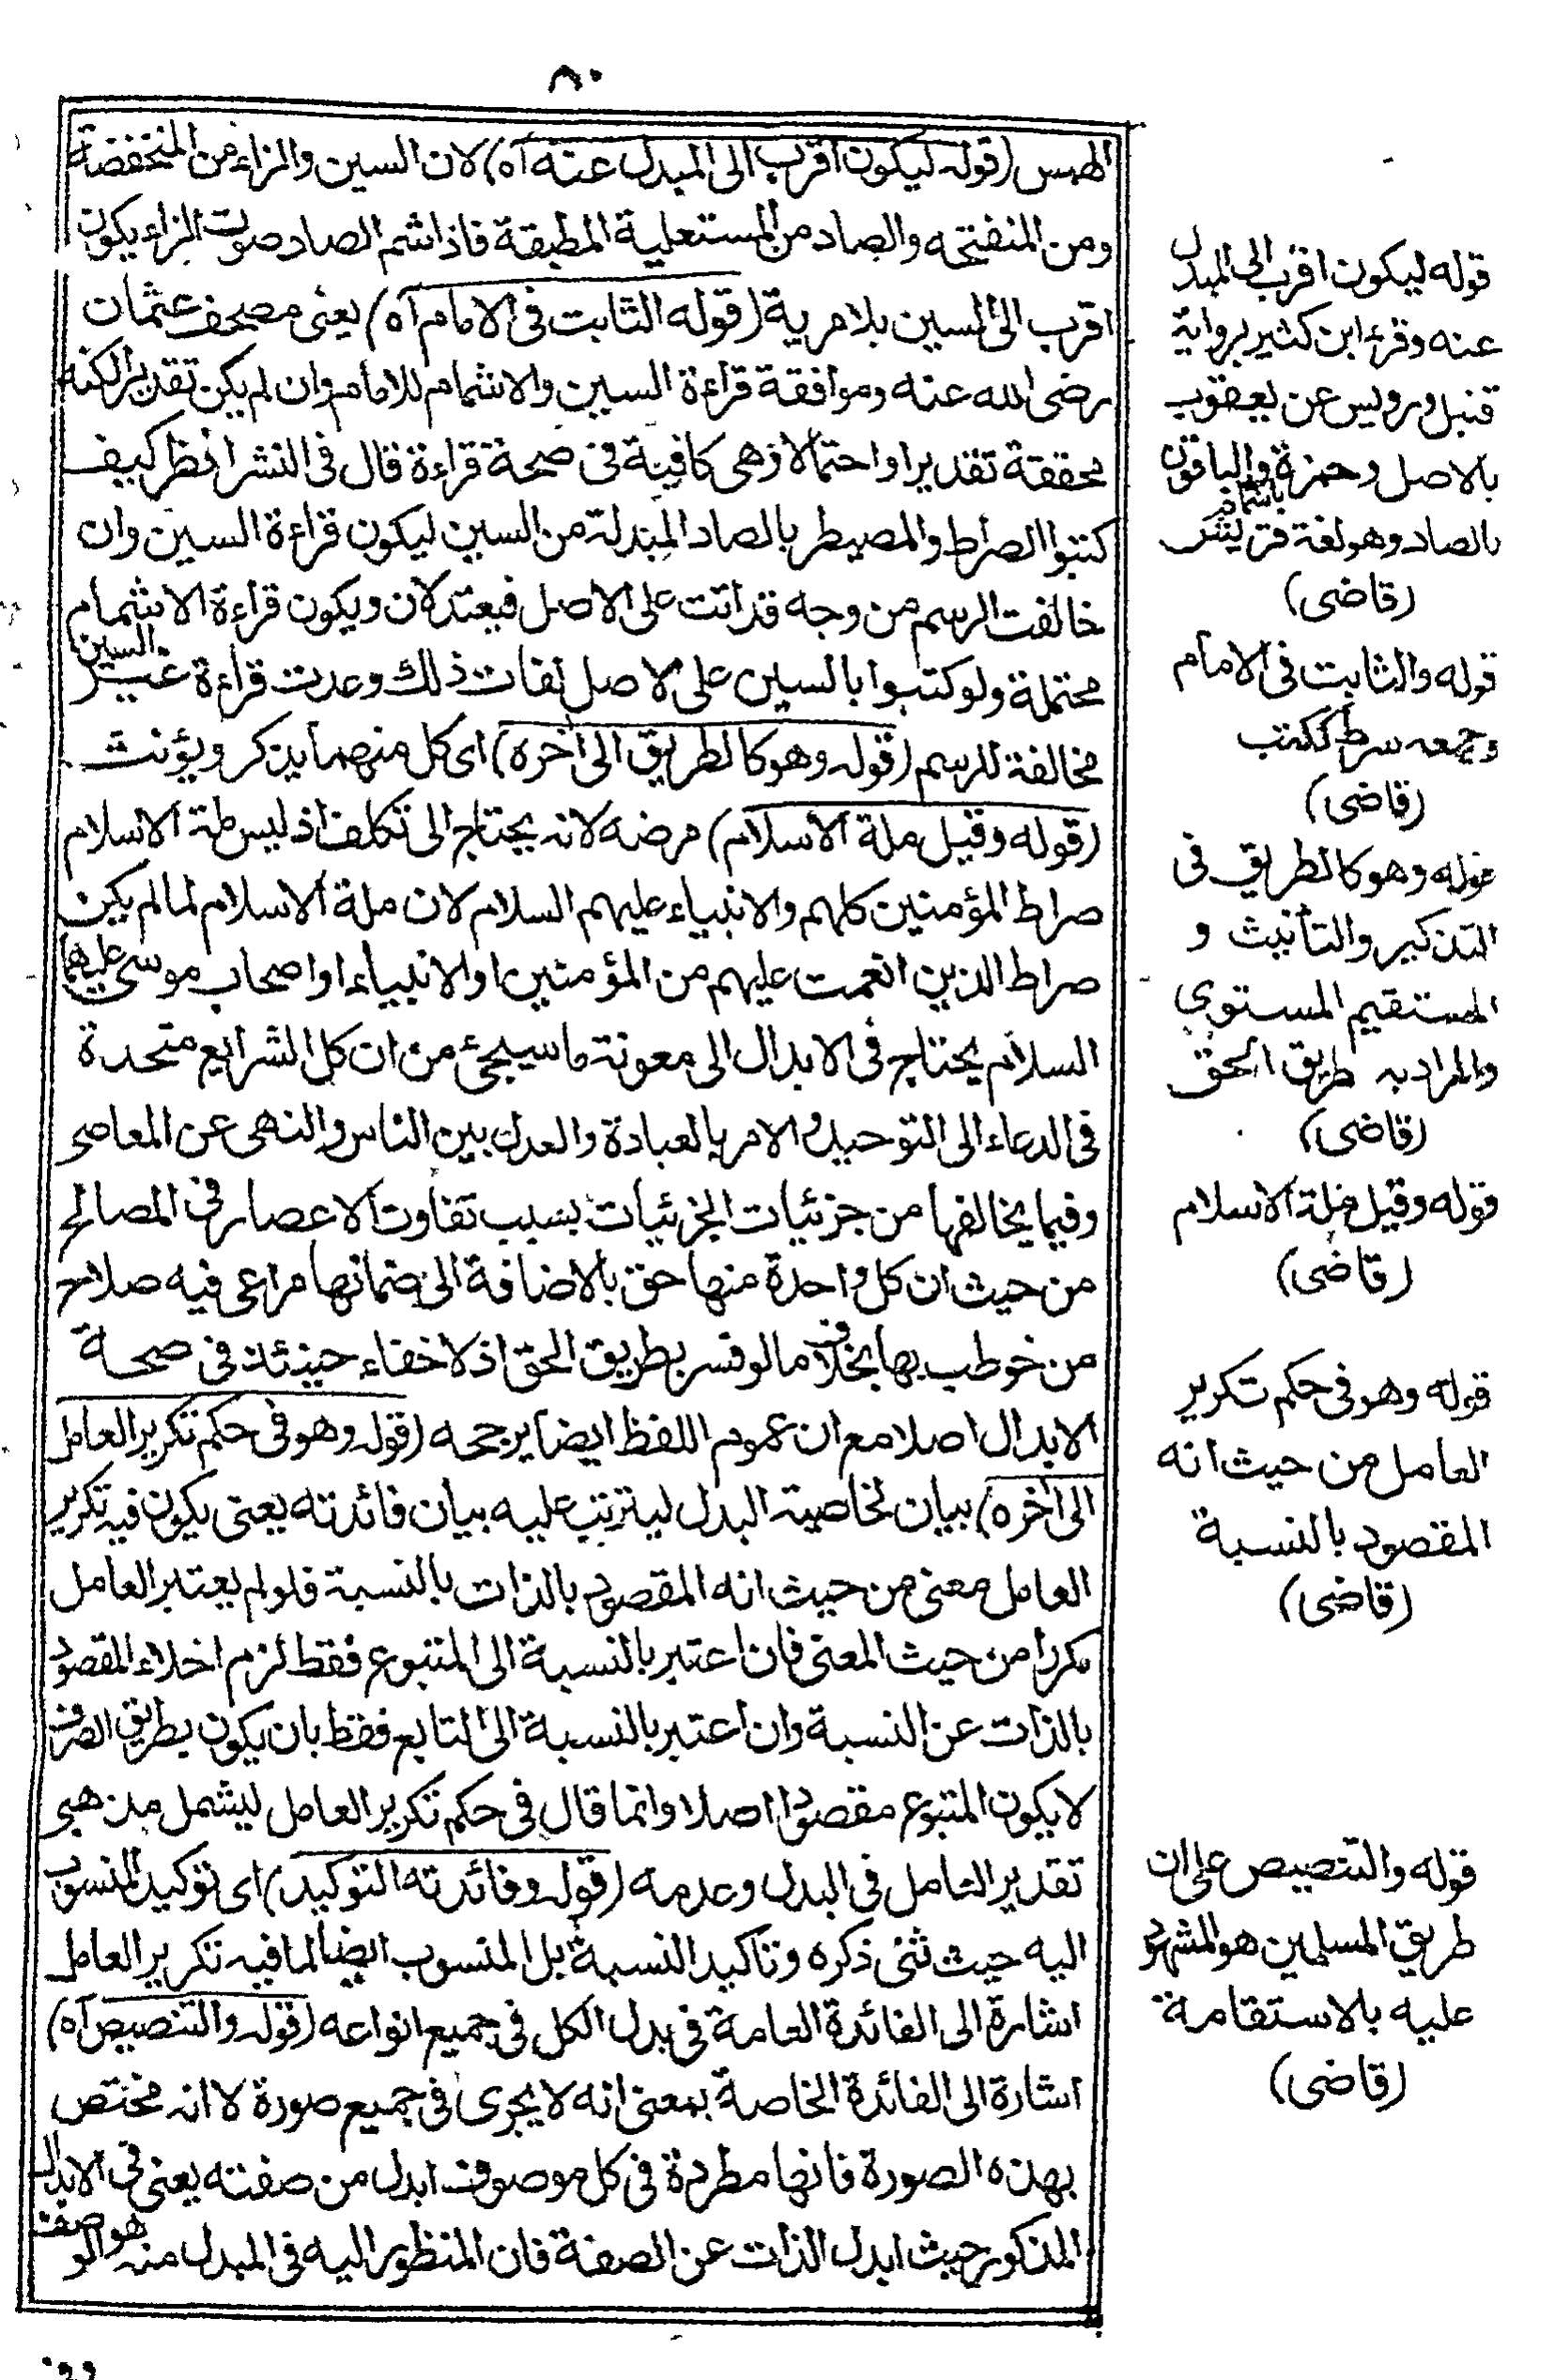 ٨٠
الهمس (قوله ليكون اقرب الى المبدل عنه آه) لان السين والزاء من المنخفضة
ومن المنفتحه والصاد من المستعلية المطبقة فاذا اشم الصاد صوت الزاء يكون
اقرب الى السين بلا مرية (قوله الثابت فى الامام آه) يعنى مصحف عثمان
رضى الله عنه وموافقة قراءة السين والاشمام للامام وان لم يكن تقديرا لكنه
محققة تقديرا واحتمالا وهى كافية فى صحة قراءة قال فى النشر انظر كيف
كتبوا الصراط والمصيطر بالصاد المبدلة من السين ليكون قراءة السين وان
خالفت الرسم من وجه قد اتت على الاصل فيعتدلان ويكون قراءة الاشمام
محتملة ولو كتبوا بالسين على الاصل لفات ذلك وعدت قراءة غير السين
مخالفة للرسم (قوله وهو كالطريق الى آخره) اى كل منهما يذكر ويؤنث
(قوله وقيل ملة الاسلام) مرضه لانه يحتاج الى تكلف اذ ليس ملة الاسلام
صراط المؤمنين كلهم والانبياء عليهم السلام لان ملة الاسلام لما لم يكن
صراط الذين انعمت عليهم من المؤمنين او الانبياء او اصحاب موسى عليهما
السلام يحتاج فى الابدال الى معونة ما سيجئ من ان كل الشرايع متحدة
فى الدعاء الى التوحيد والامر بالعبادة والعدل بين الناس والنهى عن المعاصى
وفيما يخالفها من جزئيات الجزئيات بسبب تفاوت الاعصار فى المصالح
من حيث ان كل واحدة منها حق بالاضافة الى ضمانها مراعى فيه صلاح
من خوطب بها بخلاف ما لو فسر بطريق الحق اذ لا خفاء حينئذ فى صحة
الابدال اصلا مع ان عموم اللفظ ايضا يرجحه (قوله وهو فى حكم تكرير العامل
الى آخره) بيان لخاصية البدل ليترتب عليه بيان فائدته يعنى يكون فيه تكرير
العامل معنى من حيث انه المقصود بالذات بالنسبة فلو لم يعتبر العامل
مكررا من حيث المعنى فان اعتبر بالنسبة الى المتبوع فقط لزم اخلاء المقصود
بالذات عن النسبة وان اعتبر بالنسبة الى التابع فقط بان يكون بطريق الصرف
لا يكون المتبوع مقصودا اصلا وانما قال فى حكم تكرير العامل ليشمل مذهبى
تقدير العامل فى البدل وعدمه (قوله وفائدته التوكيد) اى توكيد المنسوب
اليه حيث ثنى ذكره وتاكيد النسبة بل المنسوب ايضا لما فيه تكرير العامل
اشارة الى الفائدة العامة فى بدل الكل فى جميع انواعه (قوله والتنصيص آه)
اشارة الى الفائدة الخاصة بمعنى انه لا يجرى فى جميع صورة لا انه مختص
بهذه الصورة فانها مطردة فى كل موصوف ابدل من صفته يعنى فى الابدال
المذكور حيث ابدل الذات عن الصفة فان المنظور اليه فى المبدل منه هو الوصف
قوله ليكون اقرب الى المبدل
عنه وقرء ابن كثير برواية
قنبل ورويس عن يعقوب
بالاصل وحمزة باشمام والباقون
بالصاد وهو لغة قريش
(قاضى)
قوله والثابت فى الامام
وجمعه سرط ككتب
(قاضى)
قوله وهو كالطريق فى
التذكير والتأنيث و
المستقيم المستوى
والمراد به طريق الحق
(قاضى)
قوله وقيل ملة الاسلام
(قاضى)
قوله وهو فى حكم تكرير
العامل من حيث انه
المقصود بالنسبة
(قاضى)
قوله والتنصيص على ان
طريق المسلمين هو المشهود
عليه بالاستقامة
(قاضى)